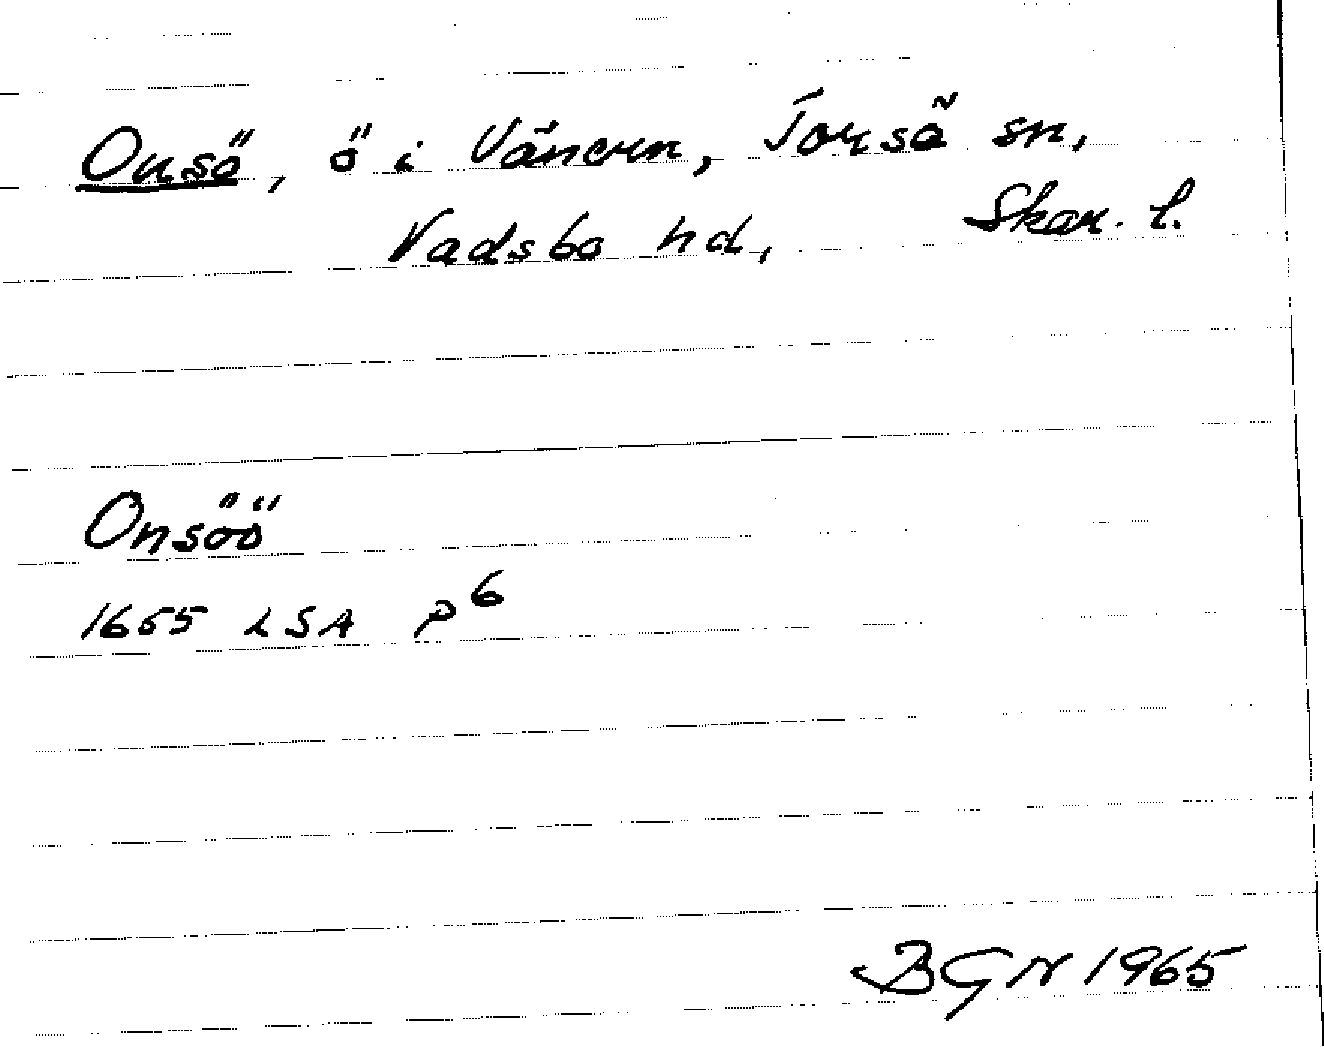 Onsö, ö i Vänern, Torsö sn,
Vadsbo hd, Skar. l.
Onsöö
1655 LSA P6
BGN 1965